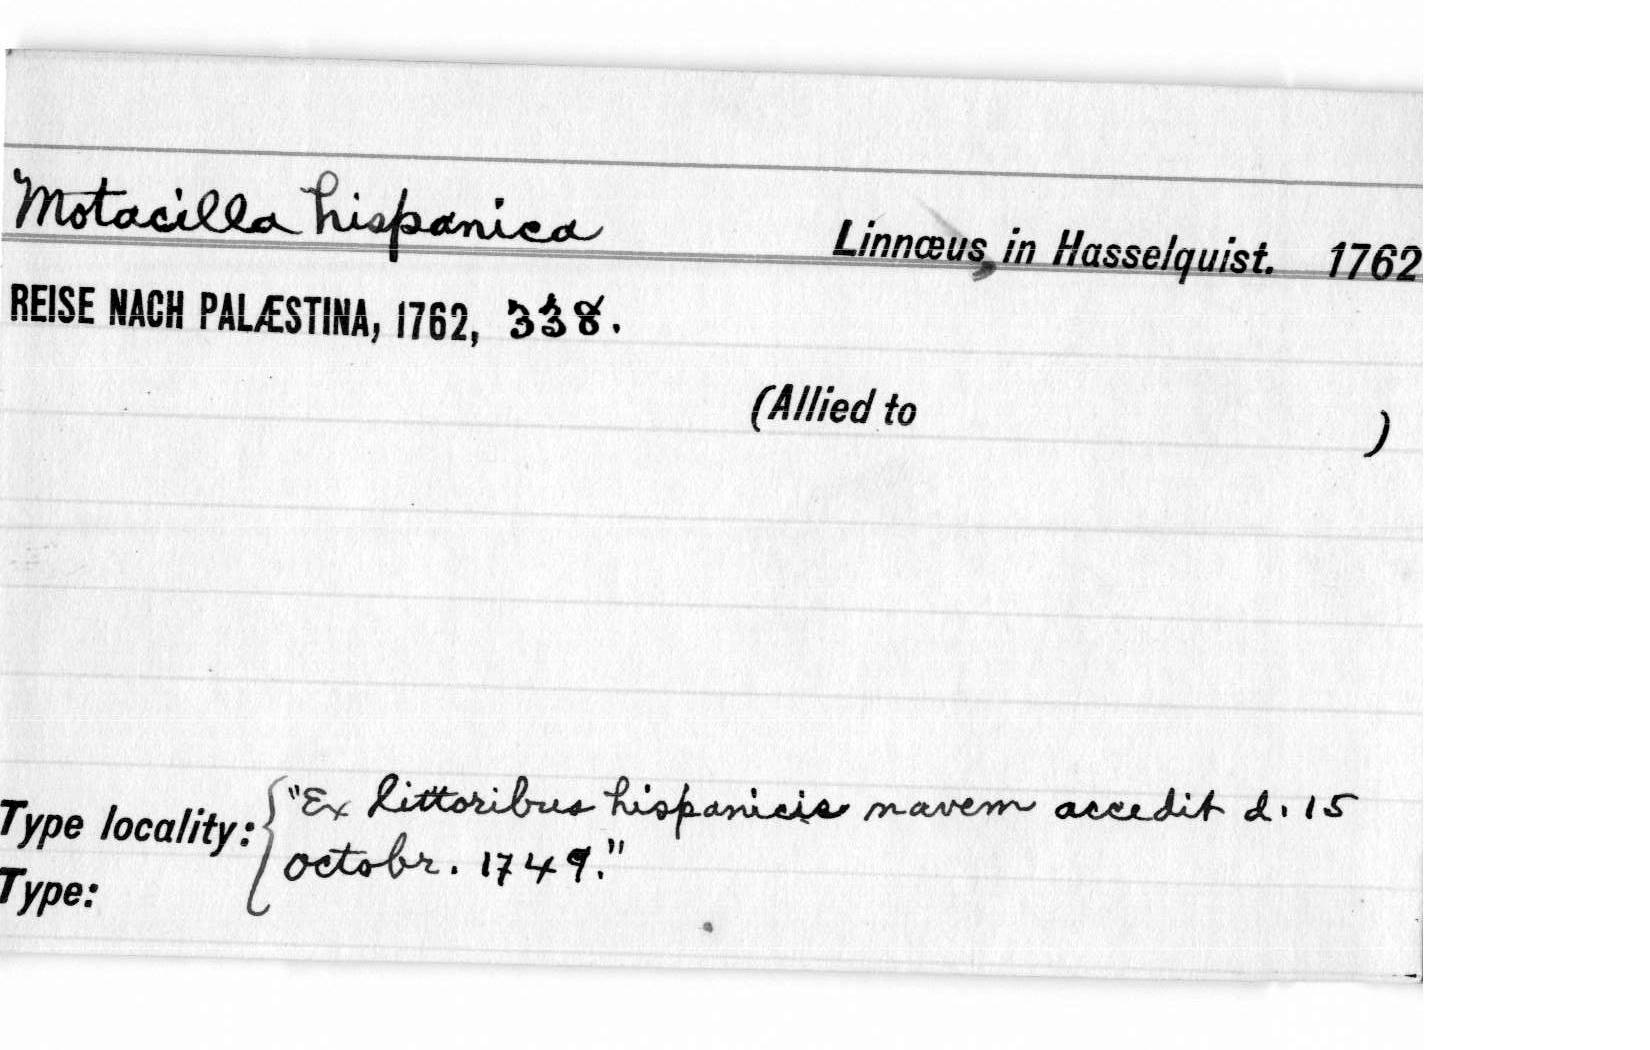 Motacilla hispanica Linnœus, in Hasselquist. 1762
REISE NACH PALÆSTINA, 1762, 338.
(Allied to )
Type locality: "Ex littoribus hispanicis navem accedit d. 15
octobr. 1749."
Type: